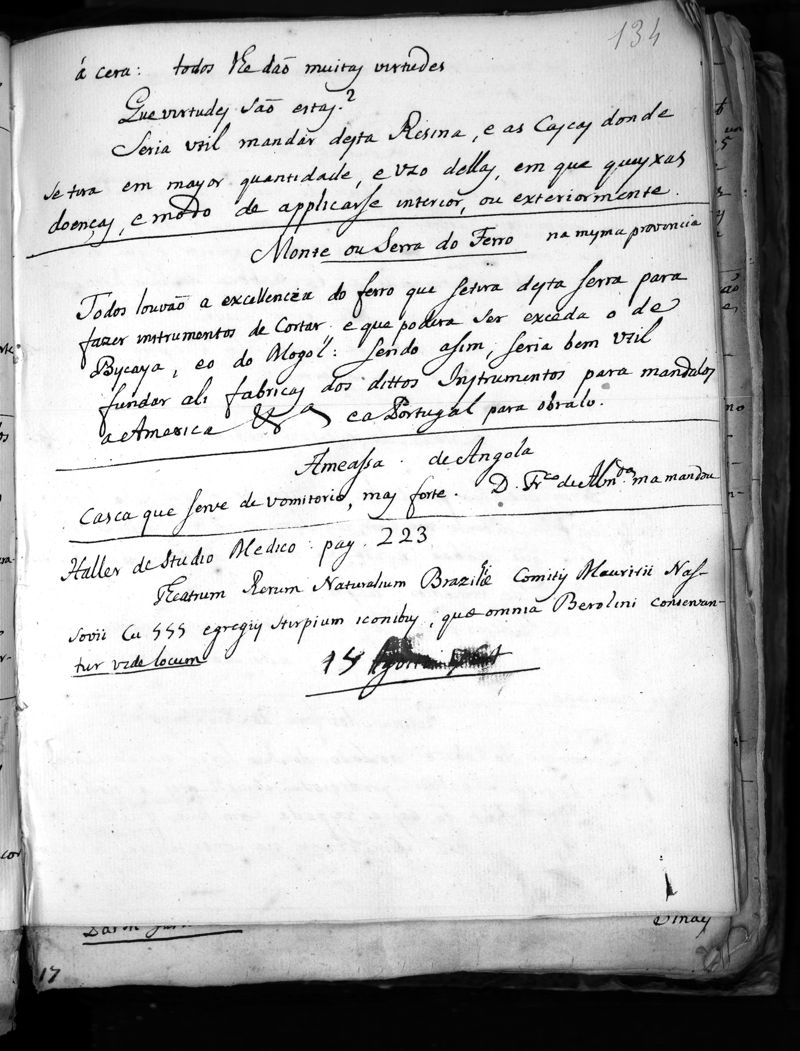 134
á cera: todos lhe dão muitas virtudes
Que virtudes são estas?
Seria util mandar desta Resina, e as Cascas donde
se tira em mayor quantidade, e uzo dellas, em que queyxas
doenças, e modo de applicarse interior, ou exteriormente.
Monte ou Serra do Ferro na mesma provincia
Todos louvão a excellencia do ferro que setira desta serra para
fazer instrumentos de Cortar e que podera ser exceda o de
Bycaya, e o do Mogol: sendo asim, seria bem util
fundar ali fabricas dos dittos Instrumentos para mandalos
a America & a e a Portugal para obralo.
Ameassa. de Angola
Casca que serve de vomitorio, mas forte. D. Frco de Almda ma mandou
Haller de Studio Medico pag. 223
Theatrum Rerum Naturalium Braziliæ Comitis Mauritii Nas-
sovii Cu 555 egregiis stirpium iconibus, quæ omnia Berolini conservan-
tur vide locum
15
17